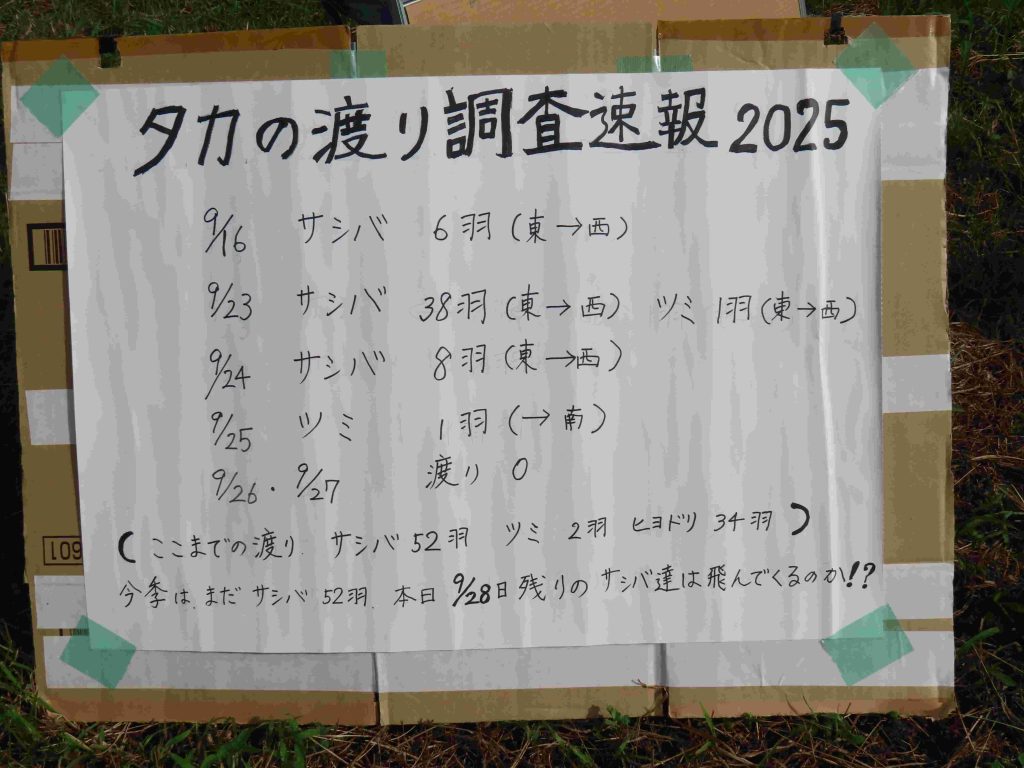 タカの渡り調査速報 2025
9/16 サシバ 6羽 (東→西)
9/23 サシバ 38羽 (東→西) ツミ 1羽 (東→西)
9/24 サシバ 8羽 (東→西)
9/25 ツミ 1羽 (→南)
9/26・9/27 渡り 0
(ここまでの渡り サシバ 52羽 ツミ 2羽 ヒヨドリ 34羽)
今季は、まだ サシバ 52羽、本日 9/28日 残りの サシバ達は飛んでくるのか!?
109